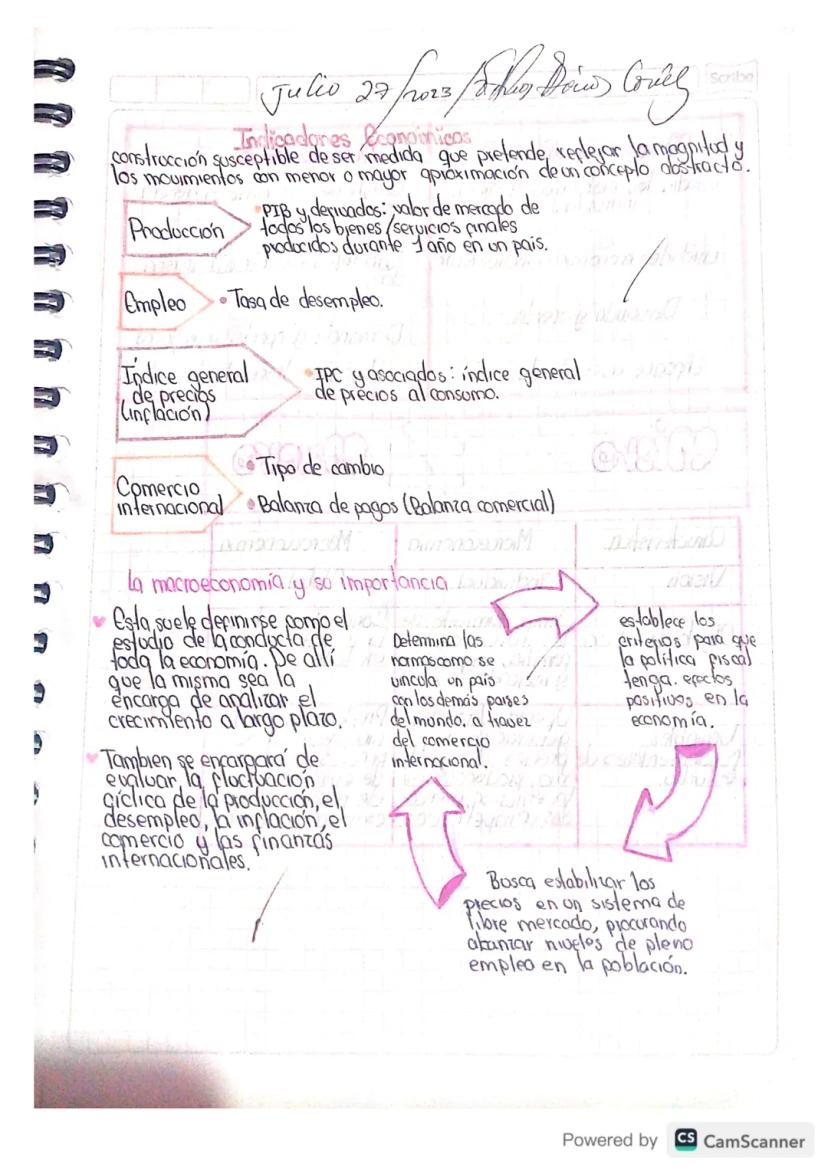 Julio 27/2023
Scribe
Indicadores Económicos
construcción susceptible de ser medida que pretende, reflejar la magnitud y
los movimientos con menor o mayor aproximación de un concepto abstracto.
Producción
• PIB y derivados: valor de mercado de
todos los bienes/servicios finales
producidos durante 1 año en un país.
Empleo
• Tasa de desempleo.
Índice general
de precios
(inflación)
• IPC y asociados: índice general
de precios al consumo.
Comercio
internacional
• Tipo de cambio
• Balanza de pagos (Balanza comercial)
La macroeconomía y su importancia
Esta suele definirse como el
estudio de la conducta de
toda la economía. De allí
que la misma sea la
encarga de analizar el
crecimiento a largo plazo.
Tambien se encargará de
evaluar la fluctuación
cíclica de la producción, el
desempleo, la inflación, el
comercio y las finanzas
internacionales.
Determina las
normas como se
vincula un país
con los demás países
del mundo, a travez
del comercio
internacional.
establece los
criterios para que
la política fiscal
tenga efectos
positivos en la
economía.
Busca estabilizar los
precios en un sistema de
libre mercado, procurando
alcanzar niveles de pleno
empleo en la población.
Powered by CS CamScanner